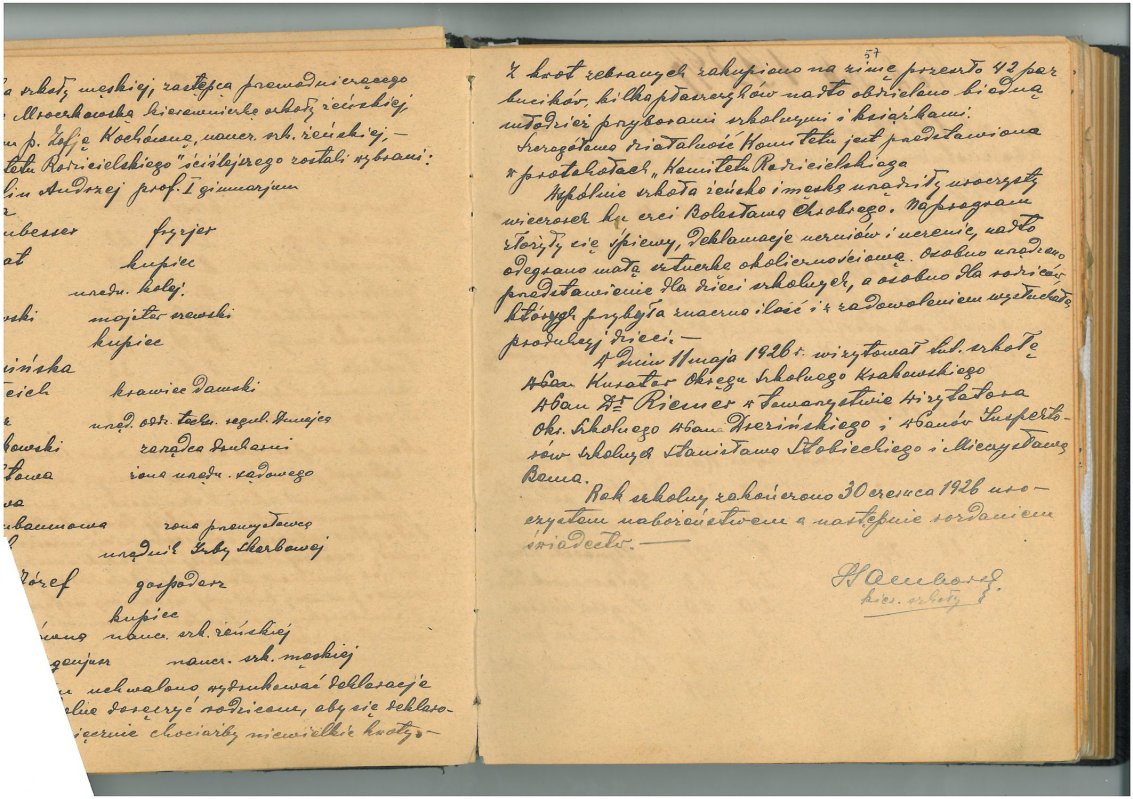 szkoły męskiej, zastępca przewodniczącego
Mroczkowska kierowniczka szkoły żeńskiej
p. Zofję Kochówną, naucz. szk. żeńskiej. —
tetu Rodzicielskiego" ściślejszego zostali wybrani:
lin Andrzej prof. I gimnazjum
nbesser fryzjer
at kupiec
urzędn. kolej.
ski majster szewski
kupiec
zińska
cich krawiec damski
urzęd. odz. techn. regul. Dunajca
kowski zarządca drukarni
towa żona urzędn. sądowego
wa
nbaumowa żona przemysłowca
urzędnik Izby Skarbowej
Józef gospodarz
kupiec
ówna naucz. szk. żeńskiej
genjusz naucz. szk. męskiej
uchwalono wydrukować deklaracje
doręczyć rodzicom, aby się deklaro-
ięcznie chociażby niewielkie kwoty. —
57
Z kwot zebranych zakupiono na zimę przeszło 42 par
bucików, kilka płaszczyków nadto obdzielono biedną
młodzież przyborami szkolnymi i książkami.
Szczegółowa działalność Komitetu jest przedstawiona
w protokołach „Komitetu Rodzicielskiego
Wspólnie szkoła żeńska i męska urządziły uroczysty
wieczorek ku czci Bolesława Chrobrego. Na program
złożyły się śpiewy, deklamacje uczniów i uczenic, nadto
odegrano małą sztuczkę okolicznościową. Osobno urządzono
przedstawienie dla dzieci szkolnych, a osobno dla rodziców,
których przybyła znaczna ilość i z zadowoleniem wysłuchała
produkcyj dzieci. —
W dniu 11 maja 1926 r. wizytował tut. szkołę
WPan Kurator Okręgu Szkolnego Krakowskiego
WPan Dr Riemer w towarzystwie wizytatora
Okr. Szkolnego WPana Dzezińskiego i WPanów Inspekto-
rów szkolnych Stanisława Słobieckiego i Mieczysława
Bema.
Rok szkolny zakończono 30 czerwca 1926 uro-
czystem nabożeństwem a następnie rozdaniem
świadectw. —
kier. szkoły